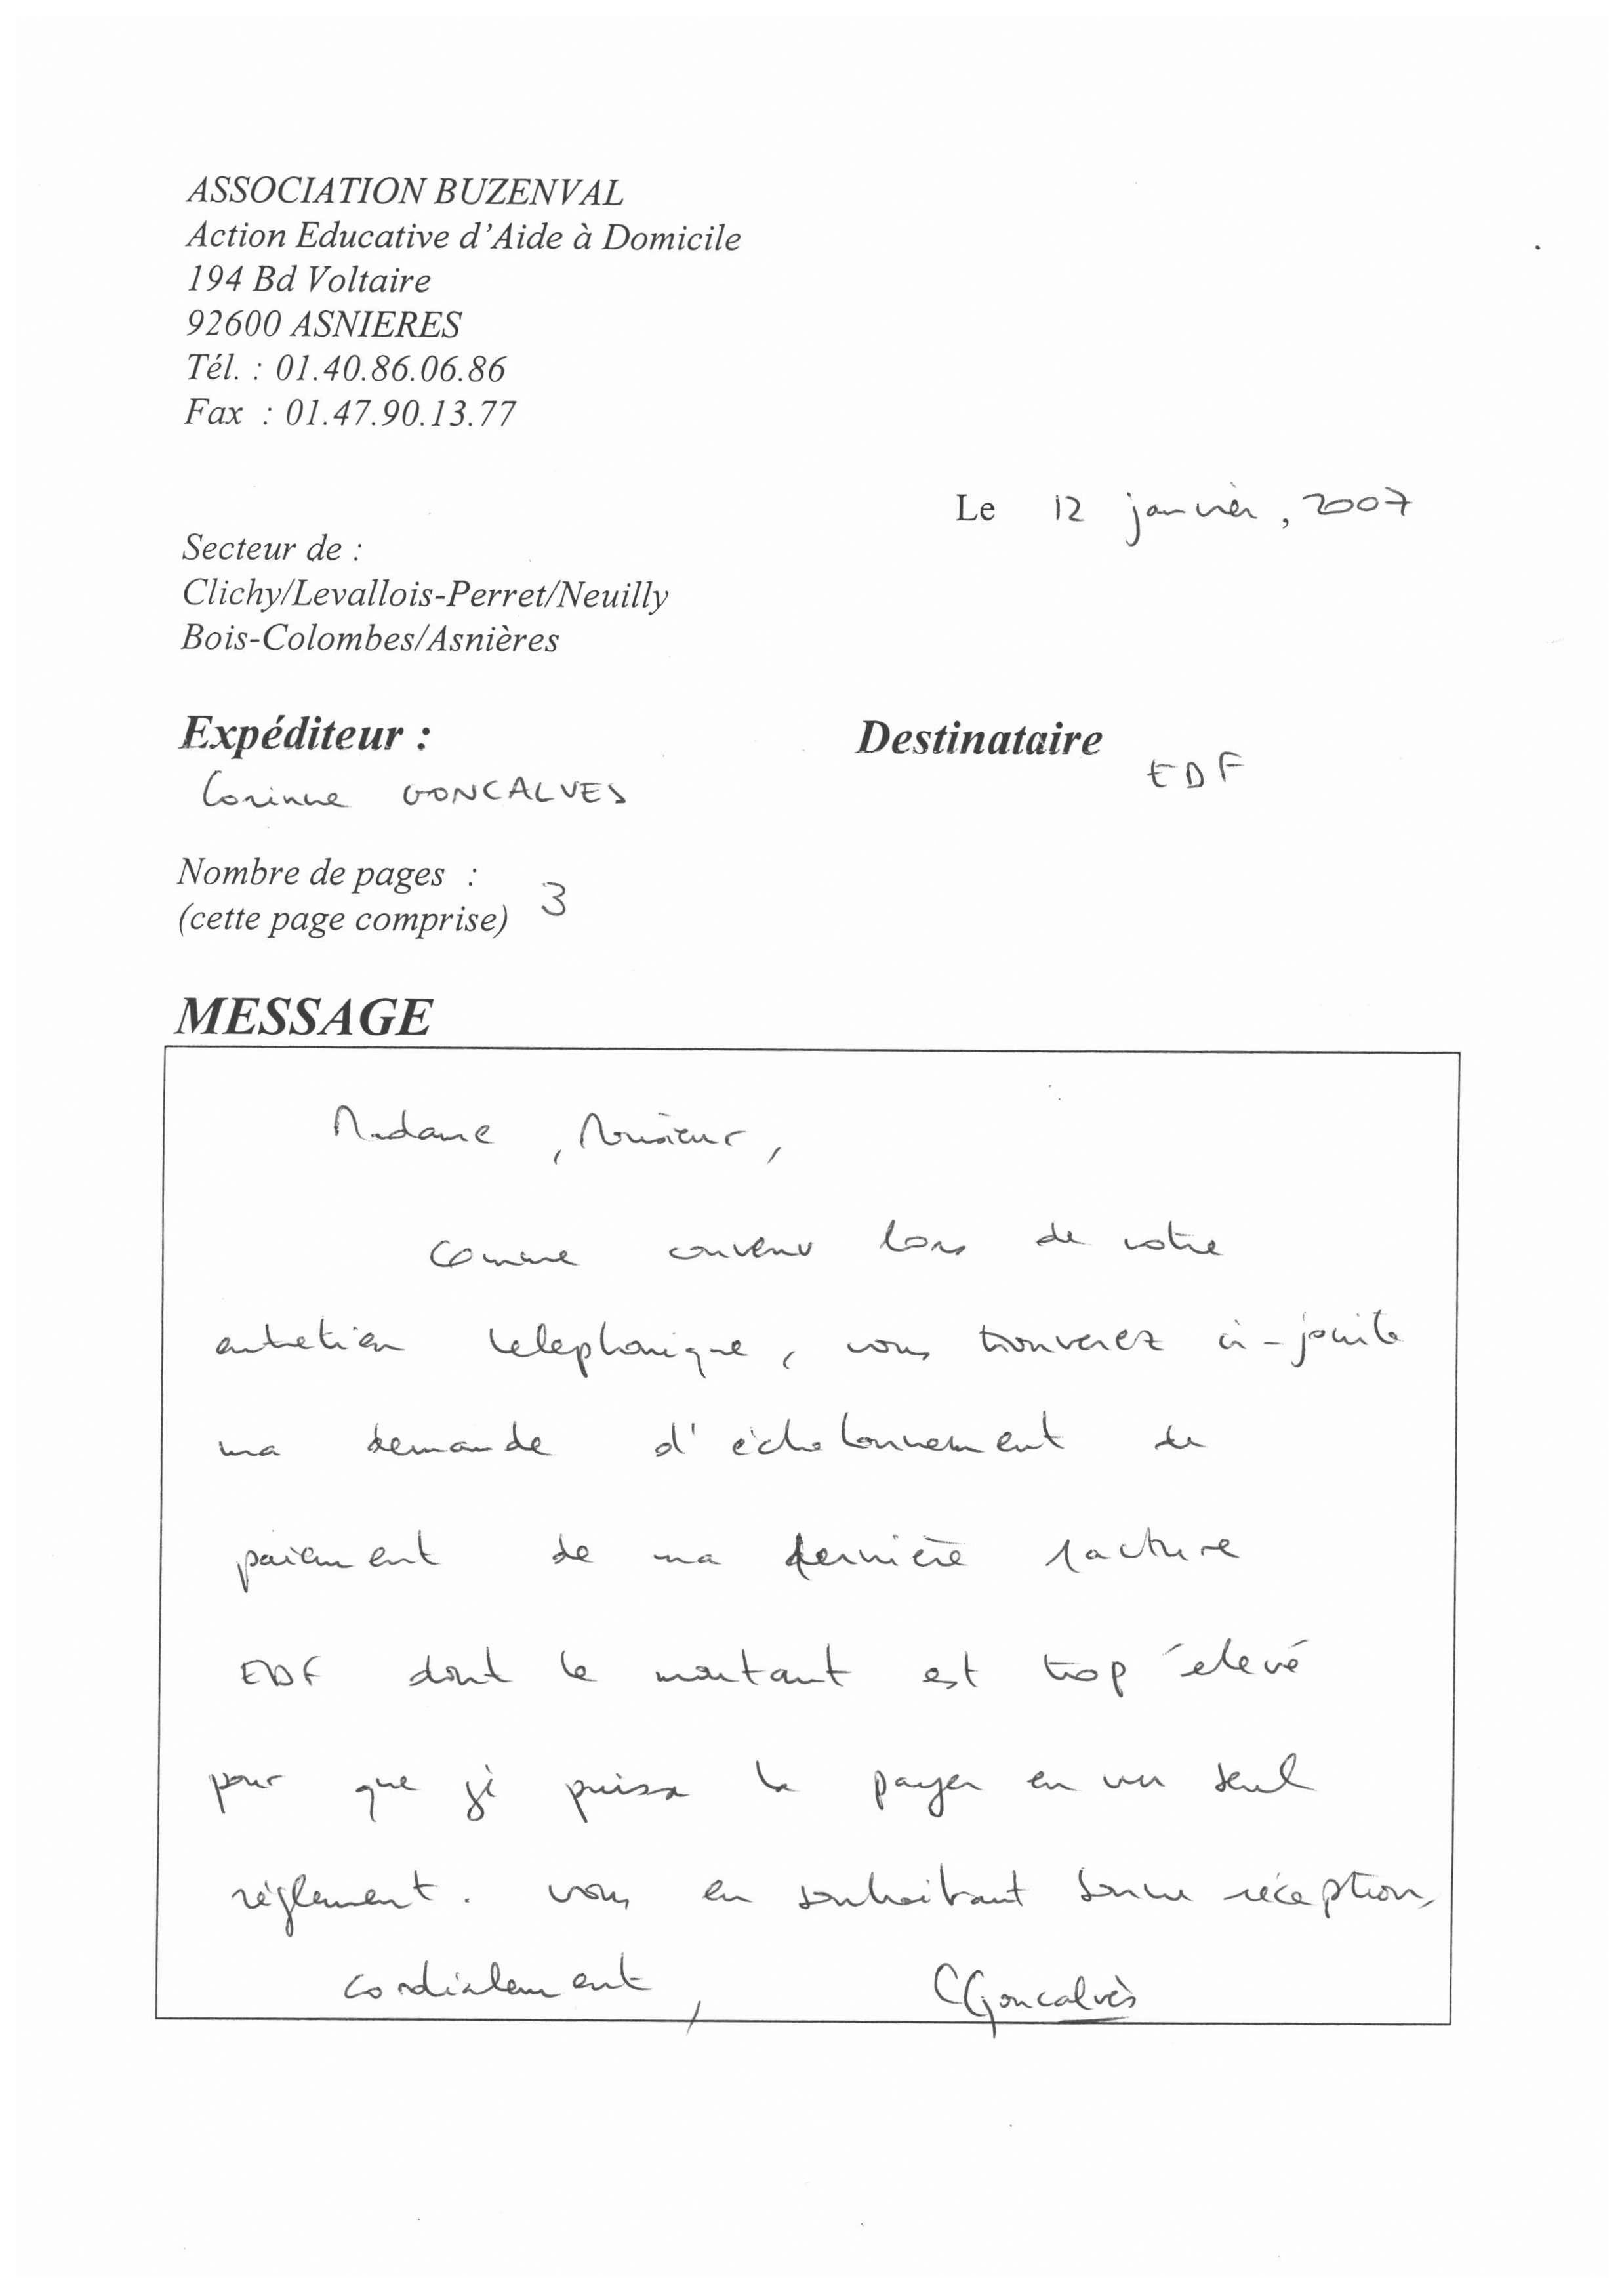 ASSOCIATION BUZENVAL
Action Educative d'Aide à Domicile
194 Bd Voltaire
92600 ASNIERES
Tél. : 01.40.86.06.86
Fax : 01.47.90.13.77
Le 12 janvier, 2007
Secteur de :
Clichy/Levallois-Perret/Neuilly
Bois-Colombes/Asnières
Expéditeur :
Corinne GONCALVES
Destinataire
EDF
Nombre de pages :
(cette page comprise) 3
MESSAGE
Madame, Monsieur,
comme convenu lors de votre
entretien telephonique, vous trouverez ci-jointe
ma demande d'échelonnement de
paiement de ma dernière facture
EDF dont le montant est trop élevé
pour que je puisse la payer en un seul
réglement. vous en souhaitant bonne réception,
cordialement, CGoncalvès